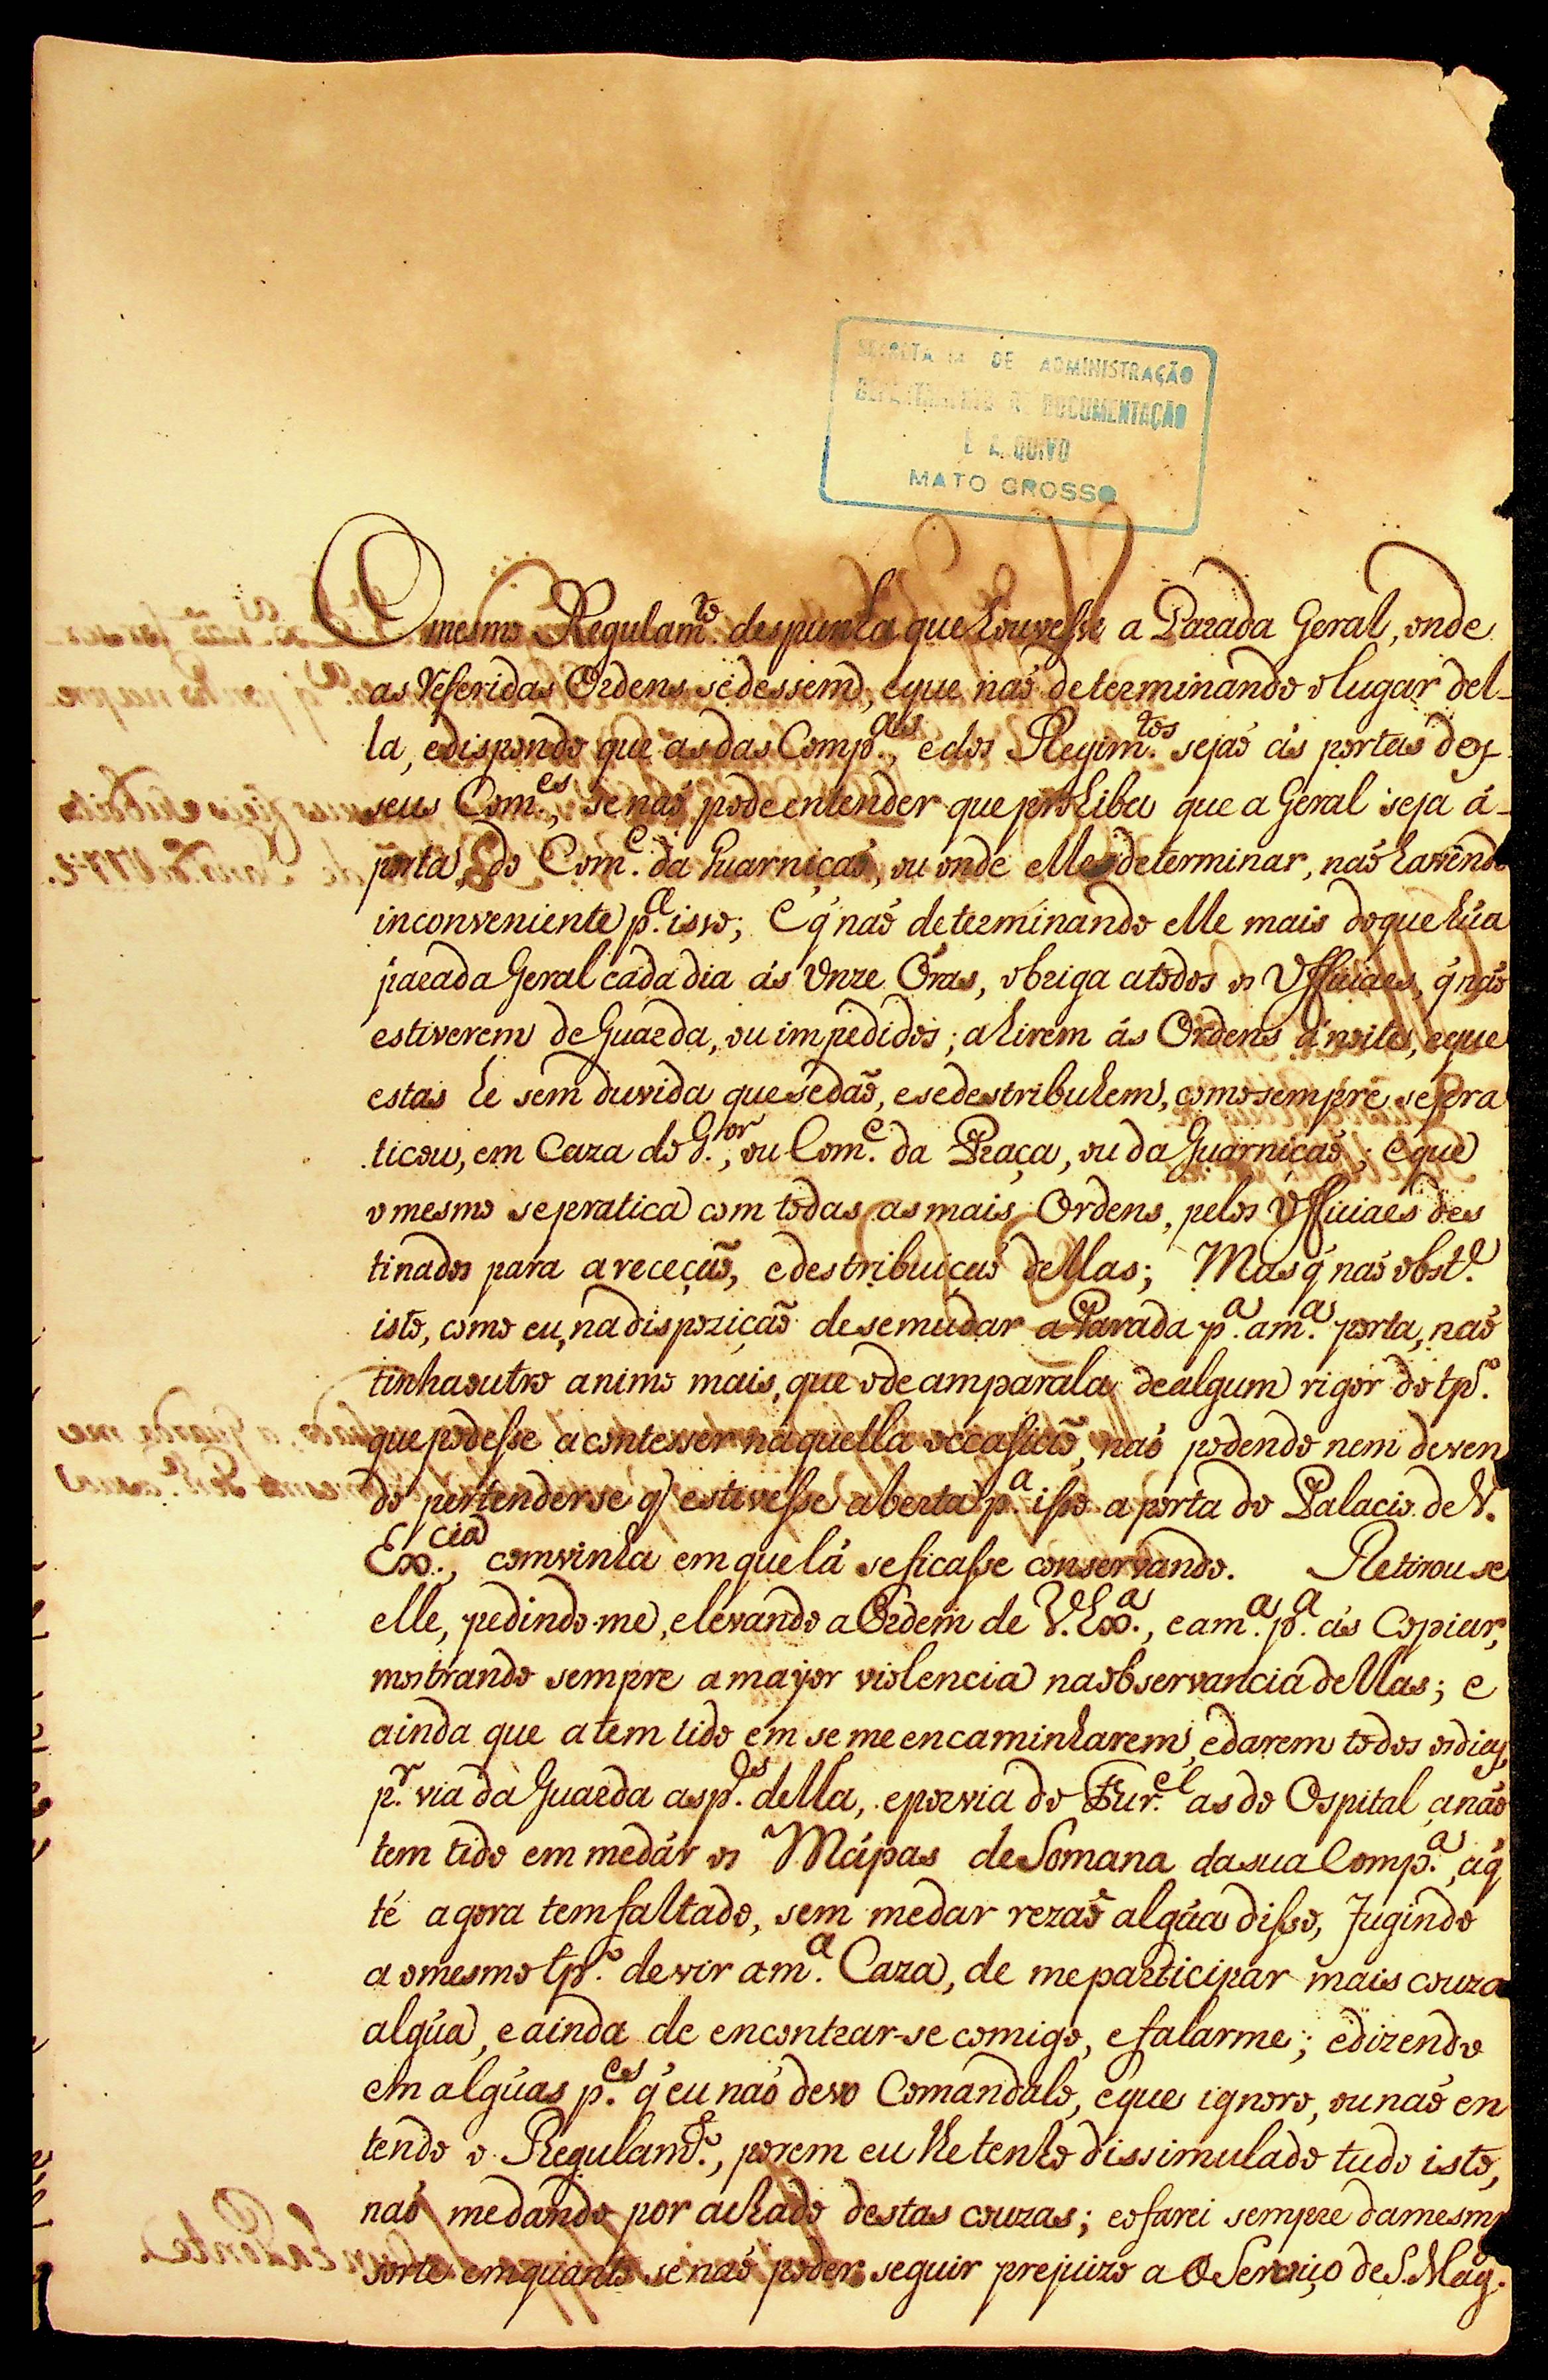 SECRETA DE ADMINISTRAÇÃO
DE DOCUMENTAÇÃO
E A QUIVO
MATO GROSSO
O mesmo Regulam.to despunha que houvesse a Parada Geral, onde
as Referidas Ordens sedessem, eque naõ determinando o lugar del-
la, edispondo que as das Comp.as, e dos Regim.tos sejaõ ás portas dos
seus Com.es, se naõ pode entender que prohiba que a Geral seja á-
porta do Com.e da Guarniçaõ, ou onde elle determinar, naõ havendo
inconveniente p.a isso; E q' naõ determinando elle mais doque hũa
parada Geral cada dia ás Onze Oras, obriga atodos os Officiaes, q' naõ
estiverem de Guarda, ou impedidos; ahirem ás Ordens á noite, eque
estas he sem duvida que sedaõ, esedestribuhem, como sempre sepra
ticou, em Caza do G.or, ou Com.e da Praça, ou da Guarniçaõ; e que
omesmo sepratica com todas as mais Ordens, pelos Officiaes des
tinados para a receçaõ, edestribuiçaõ dellas; Mas q' naõ obst.e
isto, como eu, na dispoziçaõ desemudar a Parada p.a am.a porta, naõ
tinha outro animo mais, que ode amparala dealgum rigor do tp.o
que podesse acontesser naquella occasiaõ, naõ podendo nem deven
do pertenderse q' estivesse aberta p.a isso a porta do Palacio de V.
Ex.cia, comvinha em que lá seficasse conservando. Retirouse
elle, pedindo-me, elevando a Ordem de V. Ex.a, e am.a p.a as Copiar,
mostrando sempre amayor violencia na observancia dellas; e
ainda que atem tido em se me encaminharem, edarem todos os dias,
p.r via da Guarda as p.des della, e por via do Fur.el as do Ospital, anaõ
tem tido em medár os Mápas de Somana da sua Comp.a, aq'
té agora tem faltado, sem medar rezaõ algũa disso, Fugindo
ao mesmo tp.o de vir am.a Caza, de me participar mais couza
algũa, e ainda de encontrar-se comigo, efalarme; edizendo
em algũas p.es q' eu naõ devo Comandalo, eque ignoro, ou naõ en
tendo o Regulam.to, porem eu lhe tenho dissimulado tudo isto,
naõ medando por achado destas couzas; eofarei sempre damesma
sorte emquanto se naõ poder seguir prejuizo ao Serviço de S. Mag.